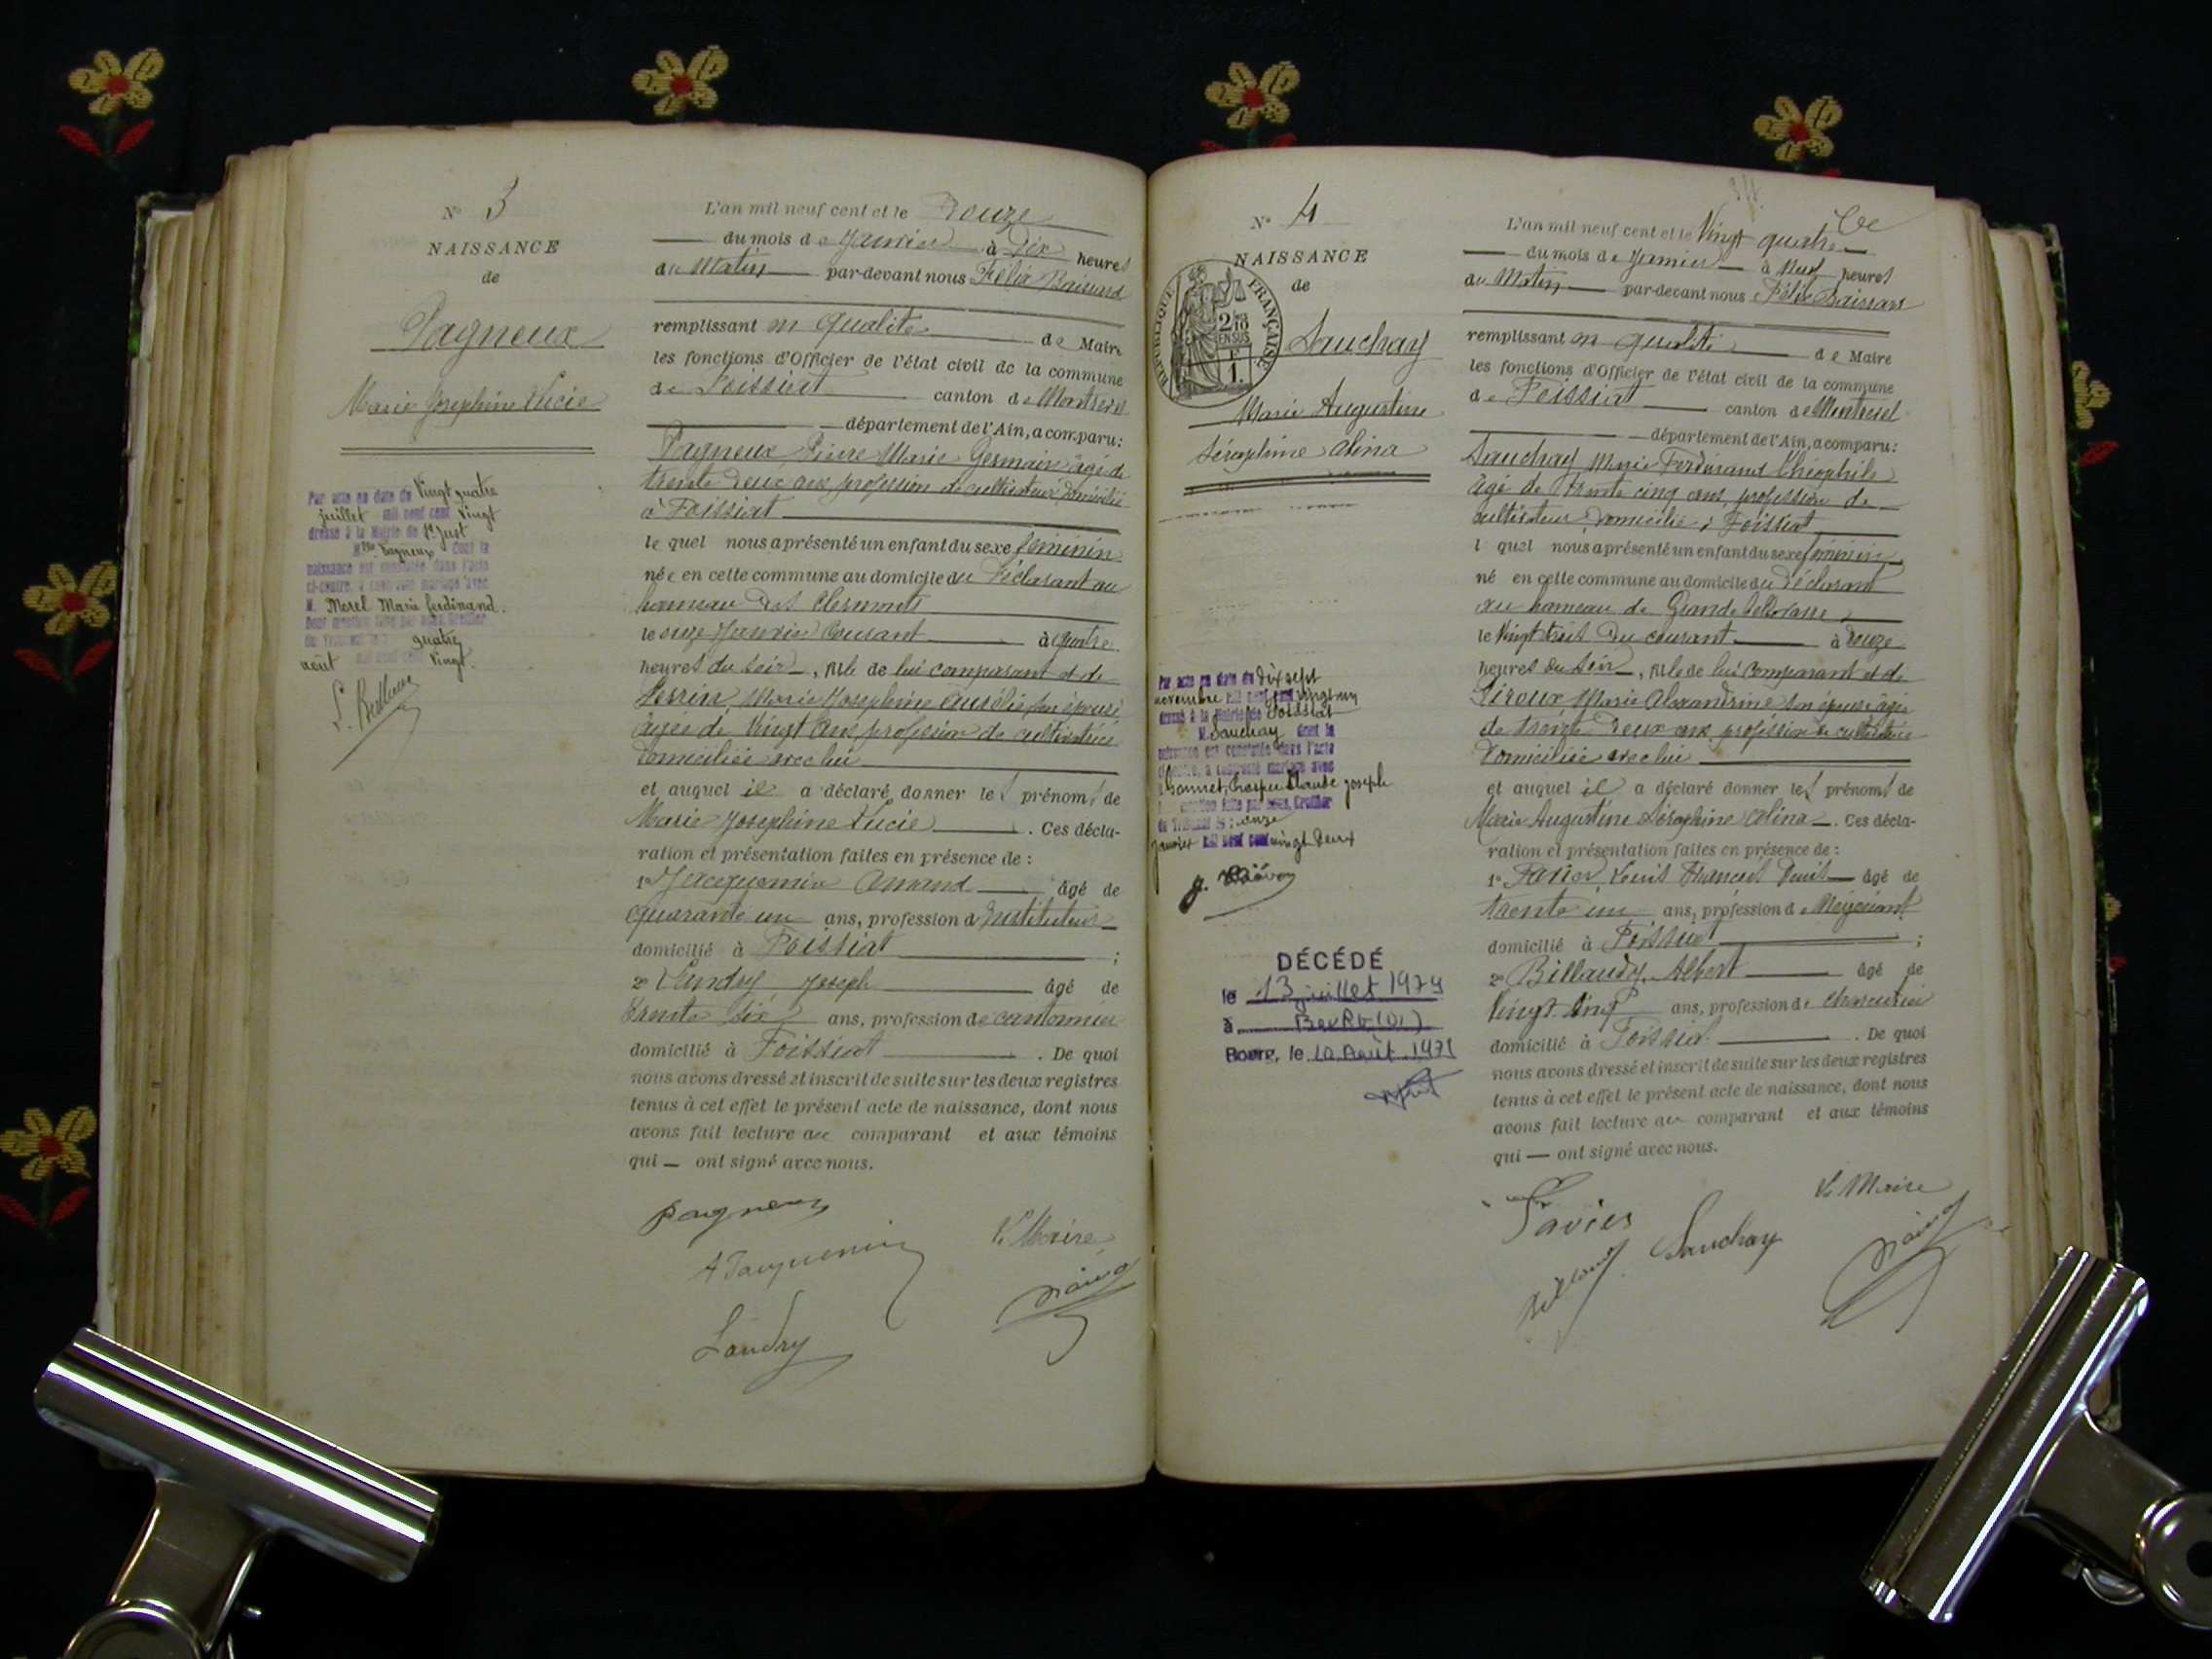 N° 3
NAISSANCE
de
Pagneux
Marie Joséphine Lucie
Par acte en date du Vingt quatre
juillet mil neuf cent vingt
dressé à la Mairie de St Just
Mlle Pagneux dont la
naissance est constatée dans l'acte
ci-contre, a contracté mariage avec
M. Morel Marie ferdinand.
quatre
août mil neuf cent vingt.
L'an mil neuf cent et le Douze
du mois de Janvier à Dix heures
du Matin par-devant nous Félix
remplissant en qualité de Maire
les fonctions d'Officier de l'état civil de la commune
de Foissiat canton de Montrevel
département de l'Ain, a comparu:
Pagneux Pierre Marie Germain âgé de
trente deux ans profession de cultivateur domicilié
à Foissiat
lequel nous a présenté un enfant du sexe féminin
née en cette commune au domicile du déclarant au
hameau des Clermonts
le onze Janvier Courant à quatre
heures du Soir, fille de lui comparant et de
Perrin Marie Joséphine Aurélie son épouse,
âgée de Vingt ans, profession de cultivatrice
domiciliée avec lui
et auquel il a déclaré donner les prénoms de
Marie Joséphine Lucie. Ces décla-
ration et présentation faites en présence de :
1° Jacquemin Armand âgé de
quarante un ans, profession d'Instituteur
domicilié à Foissiat ;
2° Landry Joseph âgé de
trente six ans, profession de cantonnier
domicilié à Foissiat. De quoi
nous avons dressé et inscrit de suite sur les deux registres
tenus à cet effet le présent acte de naissance, dont nous
avons fait lecture au comparant et aux témoins
qui — ont signé avec nous.
Pagneux
A Jacquemin
Le Maire
Landry
N° 4
NAISSANCE
de
RÉPUBLIQUE FRANÇAISE
Sauchay
Marie Augustine
Séraphine Alina
Par acte en date du dix sept
novembre mil neuf cent vingt un
dressé à la Mairie de Foissiat
M Sauchay dont la
naissance est constatée dans l'acte
ci-contre, a contracté mariage avec
Claude Joseph
mention faite par nous, Greffier
du Tribunal le onze
janvier mil neuf cent vingt deux
DÉCÉDÉ
le 13 juillet 1979
à
Bourg, le 10 Août
L'an mil neuf cent et le Vingt quatre
du mois de Janvier à Neuf heures
du Matin par-devant nous Félix
remplissant en qualité de Maire
les fonctions d'Officier de l'état civil de la commune
de Foissiat canton de Montrevel
département de l'Ain, a comparu:
Sauchay Marie Ferdinand Théophile
âgé de trente cinq ans, profession de
cultivateur domicilié à Foissiat
lquel nous a présenté un enfant du sexe féminin
né en cette commune au domicile du déclarant
au hameau de Grande
le Vingt trois du courant à onze
heures du Soir, fille de lui comparant et de
Marie Alexandrine son épouse âgée
de trente deux ans, profession de cultivatrice
domiciliée avec lui
et auquel il a déclaré donner les prénoms de
Marie Augustine Séraphine Alina. Ces décla-
ration et présentation faites en présence de :
1° Louis François âgé de
trente un ans, profession de Négociant
domicilié à Foissiat ;
2° Billaudy Albert âgé de
Vingt cinq ans, profession de charcutier
domicilié à Foissiat. De quoi
nous avons dressé et inscrit de suite sur les deux registres
tenus à cet effet le présent acte de naissance, dont nous
avons fait lecture au comparant et aux témoins
qui — ont signé avec nous.
Le Maire
Sauchay